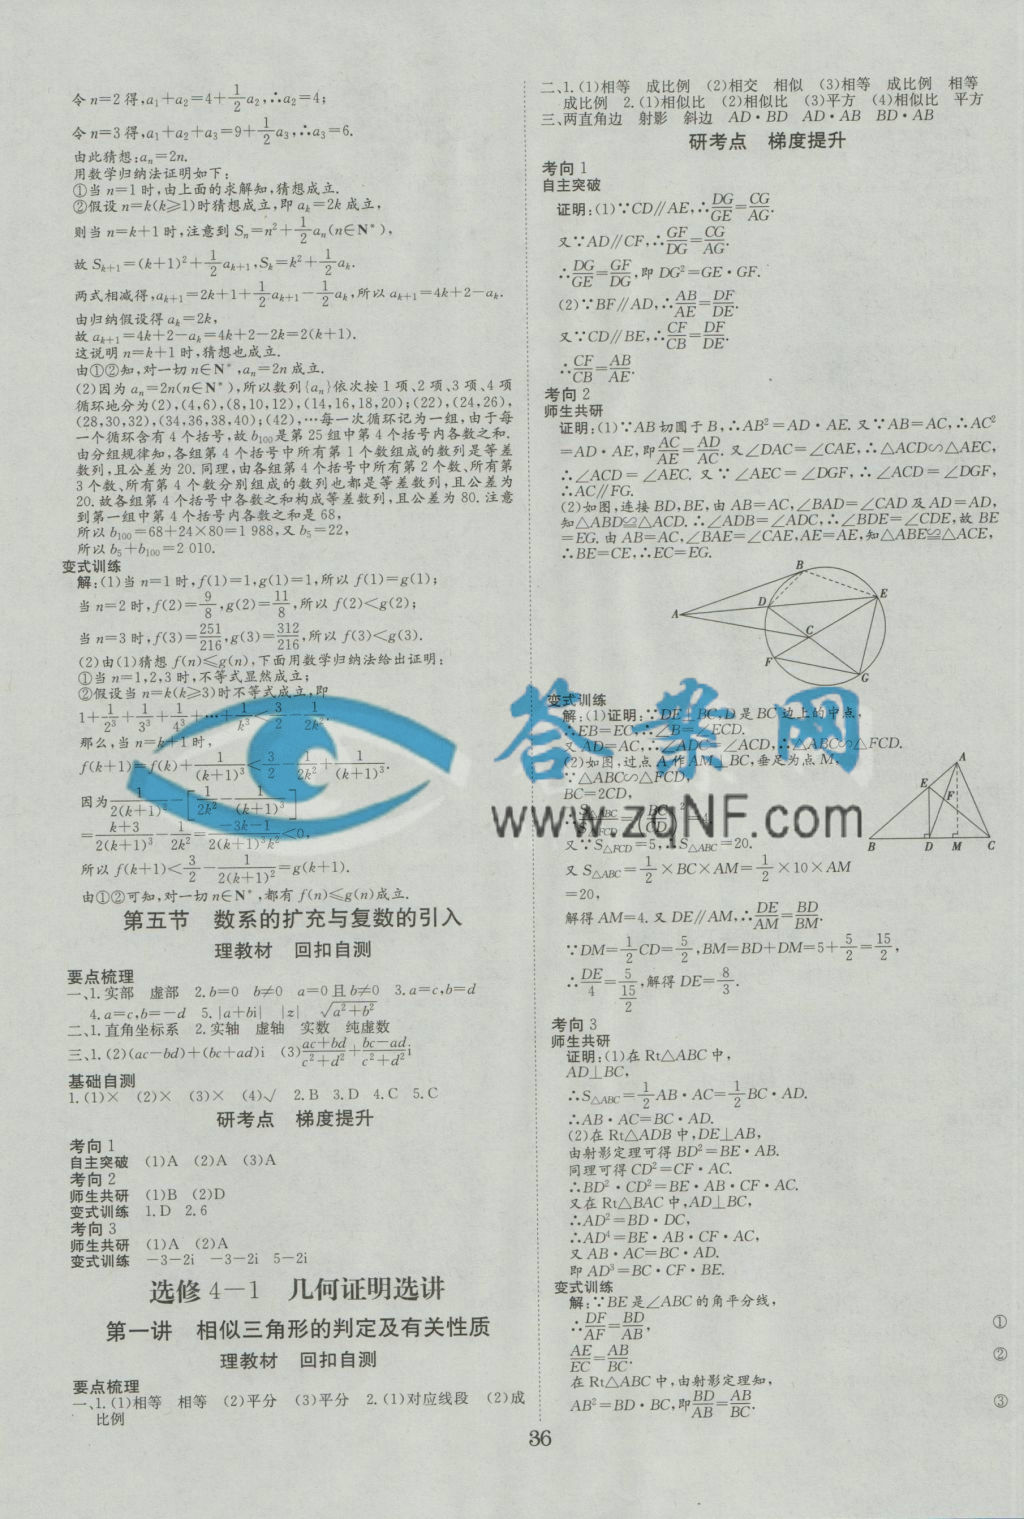 令n=2得,a₁+a₂=4+1/2a₂,∴a₂=4;
令n=3得,a₁+a₂+a₃=9+1/2a₃,∴a₃=6.
由此猜想:aₙ=2n.
用数学归纳法证明如下:
①当n=1时,由上面的求解知,猜想成立.
②假设n=k(k⩾1)时猜想成立,即aₖ=2k成立,
则当n=k+1时,注意到Sₙ=n²+1/2aₙ(n∈N*),
故Sₖ₊₁=(k+1)²+1/2aₖ₊₁,Sₖ=k²+1/2aₖ.
两式相减得,aₖ₊₁=2k+1+1/2aₖ₊₁-1/2aₖ,所以aₖ₊₁=4k+2-aₖ.
由归纳假设得aₖ=2k,
故aₖ₊₁=4k+2-aₖ=4k+2-2k=2(k+1).
这说明n=k+1时,猜想也成立.
由①②知,对一切n∈N*,aₙ=2n成立.
(2)因为aₙ=2n(n∈N*),所以数列{aₙ}依次按1项、2项、3项、4项
循环地分为(2),(4,6),(8,10,12),(14,16,18,20);(22),(24,26),
(28,30,32),(34,36,38,40);(42),…每一次循环记为一组,由于每
一个循环含有4个括号,故b₁₀₀是第25组中第4个括号内各数之和.
由分组规律知,各组第4个括号中所有第1个数组成的数列是等差
数列,且公差为20.同理,由各组第4个括号中所有第2个数、所有第
3个数、所有第4个数分别组成的数列也都是等差数列,且公差为
20.故各组第4个括号中各数之和构成等差数列,且公差为80.注意
到第一组中第4个括号内各数之和是68,
所以b₁₀₀=68+24×80=1 988,又b₅=22,
所以b₅+b₁₀₀=2 010.
变式训练
解:(1)当n=1时,f(1)=1,g(1)=1,所以f(1)=g(1);
当n=2时,f(2)=9/8,g(2)=11/8,所以f(2)<g(2);
当n=3时,f(3)=251/216,g(3)=312/216,所以f(3)<g(3).
(2)由(1)猜想f(n)⩽g(n),下面用数学归纳法给出证明:
①当n=1,2,3时,不等式显然成立;
②假设当n=k(k⩾3)时不等式成立,即
1+1/2³+1/3³+1/4³+…+1/k³<3/2-1/2k².
那么,当n=k+1时,
f(k+1)=f(k)+1/(k+1)³<3/2-1/2k²+1/(k+1)³.
因为1/2(k+1)²-[1/2k²-1/(k+1)³]
=k+3/2(k+1)³-1/2k²=-3k-1/2(k+1)³k²<0,
所以f(k+1)<3/2-1/2(k+1)²=g(k+1).
由①②可知,对一切n∈N*,都有f(n)⩽g(n)成立.
第五节 数系的扩充与复数的引入
理教材 回扣自测
要点梳理
一、1.实部 虚部 2.b=0 b≠0 a=0且b≠0 3.a=c,b=d
4.a=c,b=-d 5.|a+bi| |z| √(a²+b²)
二、1.直角坐标系 2.实轴 虚轴 实数 纯虚数
三、1.(2)(ac-bd)+(bc+ad)i (3)ac+bd/c²+d²+bc-ad/c²+d²i
基础自测
1.(1)× (2)× (3)× (4)√ 2.B 3.D 4.C 5.C
研考点 梯度提升
考向1
自主突破 (1)A (2)A (3)A
考向2
师生共研 (1)B (2)D
变式训练 1.D 2.6
考向3
师生共研 (1)A (2)A
变式训练 -3-2i -3-2i 5-2i
选修4-1 几何证明选讲
第一讲 相似三角形的判定及有关性质
理教材 回扣自测
要点梳理
一、1.(1)相等 相等 (2)平分 (3)平分 2.(1)对应线段 (2)成
比例
二、1.(1)相等 成比例 (2)相交 相似 (3)相等 成比例 相等
成比例 2.(1)相似比 (2)相似比 (3)平方 (4)相似比 平方
三、两直角边 射影 斜边 AD·BD AD·AB BD·AB
研考点 梯度提升
考向1
自主突破
证明:(1)∵CD∥AE,∴DG/GE=CG/AG.
又∵AD∥CF,∴GF/DG=CG/AG.
∴DG/GE=GF/DG,即DG²=GE·GF.
(2)∵BF∥AD,∴AB/AE=DF/DE.
又∵CD∥BE,∴CF/CB=DF/DE.
∴CF/CB=AB/AE.
考向2
师生共研
证明:(1)∵AB切圆于B,∴AB²=AD·AE.又∵AB=AC,∴AC²
=AD·AE,即AC/AE=AD/AC.又∠DAC=∠CAE,∴△ACD∽△AEC,
∴∠ACD=∠AEC.又∵∠AEC=∠DGF,∴∠ACD=∠DGF,
∴AC∥FG.
(2)如图,连接BD,BE,由AB=AC,∠BAD=∠CAD及AD=AD,
知△ABD≌△ACD.∴∠ADB=∠ADC,∴∠BDE=∠CDE,故BE
=EG.由AB=AC,∠BAE=∠CAE,AE=AE,知△ABE≌△ACE,
∴BE=CE,∴EC=EG.
B
D
E
A
C
F
G
变式训练
解:(1)证明:∵DE⊥BC,D是BC边上的中点,
∴EB=EC,∴∠B=∠ECD.
又AD=AC,∴∠ADC=∠ACD,∴△ABC∽△FCD.
(2)如图,过点A作AM⊥BC,垂足为点M,
∵△ABC∽△FCD,
BC=2CD,
又∵S△FCD=5,∴S△ABC=20.
又S△ABC=1/2×BC×AM=1/2×10×AM
=20,
解得AM=4.又DE∥AM,∴DE/AM=BD/BM.
∵DM=1/2CD=5/2,BM=BD+DM=5+5/2=15/2,
∴DE/4=5/(15/2),解得DE=8/3.
A
E
F
B
D
M
C
考向3
师生共研
证明:(1)在Rt△ABC中,
AD⊥BC,
∴S△ABC=1/2AB·AC=1/2BC·AD.
∴AB·AC=BC·AD.
(2)在Rt△ADB中,DE⊥AB,
由射影定理可得BD²=BE·AB.
同理可得CD²=CF·AC.
∴BD²·CD²=BE·AB·CF·AC.
又在Rt△BAC中,AD⊥BC,
∴AD²=BD·DC,
∴AD⁴=BE·AB·CF·AC,
又AB·AC=BC·AD.
即AD³=BC·CF·BE.
变式训练
解:∵BE是∠ABC的角平分线,
∴DF/AF=BD/AB, ①
AE/EC=AB/BC. ②
在Rt△ABC中,由射影定理知,
AB²=BD·BC,即BD/AB=AB/BC. ③
36
答案网
www.zqNF.com